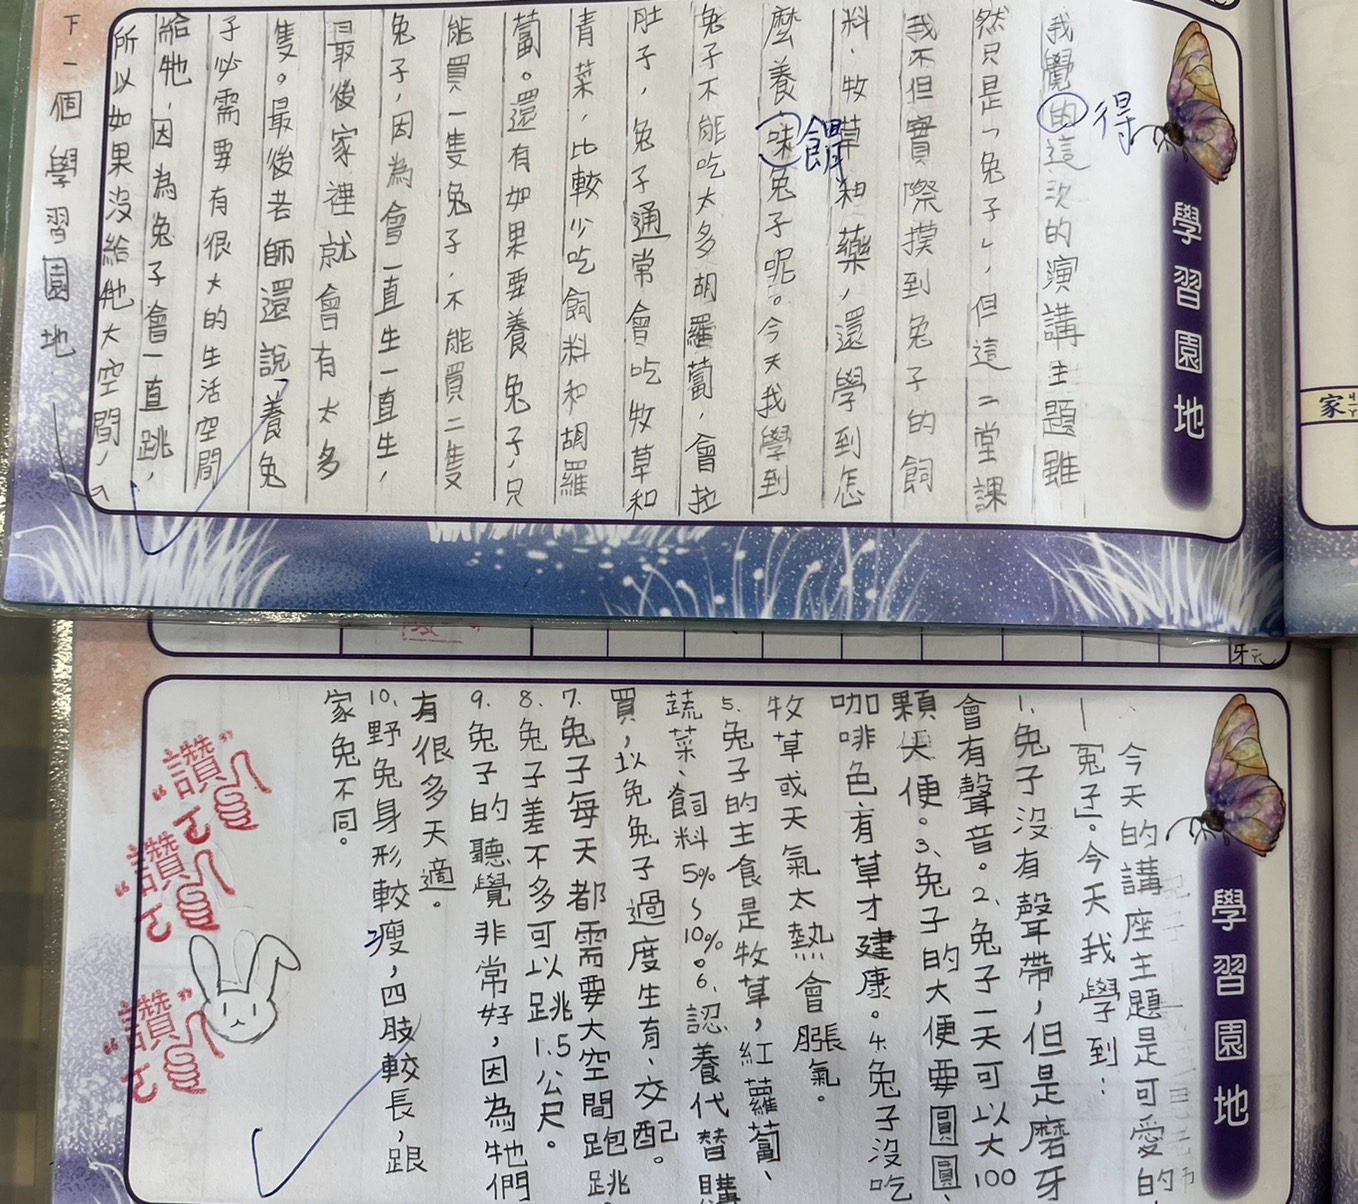 學習園地
得
我覺的這次的演講主題雖
然只是「兔子」，但這二堂課
我不但實際摸到兔子的飼
料、牧草和藥，還學到怎
餵
麼養味兔子呢。今天我學到
兔子不能吃太多胡羅蔔，會拉
肚子，兔子通常會吃牧草和
青菜，比較少吃飼料和胡羅
蔔。還有如果要養兔子，只
能買一隻兔子，不能買二隻
兔子，因為會一直生一直生，
最後家裡就會有太多
隻。最後老師還說養兔
子必需要有很大的生活空間
給牠，因為兔子會一直跳，
所以如果沒給牠大空間，
下一個學習園地
家
學習園地
今天的講座主題是可愛的
「兔子」。今天我學到：
1.兔子沒有聲帶，但是磨牙
會有聲音。2.兔子一天可以大100
顆大便。3.兔子的大便要圓圓、
咖啡色、有草才建康。4.兔子沒吃
牧草或天氣太熱會脹氣。
5.兔子的主食是牧草，紅蘿蔔、
蔬菜、飼料5%~10%。6.認養代替購
買，以免兔子過度生育、交配。
7.兔子每天都需要大空間跑跳
8.兔子差不多可以跳1.5公尺。
9.兔子的聽覺非常好，因為牠們
有很多天適。
10.野兔身形較瘦，四肢較長，跟
家兔不同。
“讚”
“讚”
“讚”